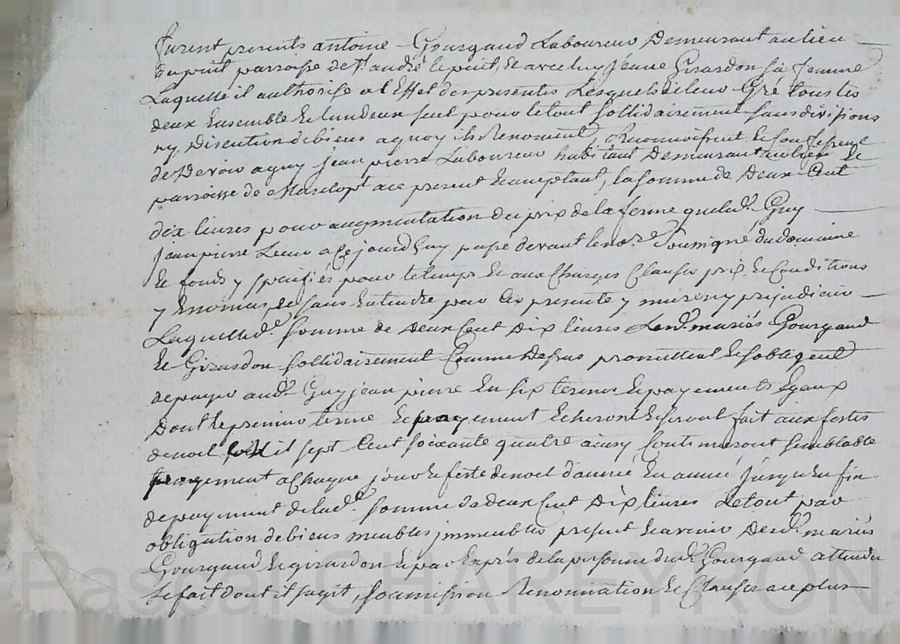 furent presents antoine Gourgaud Laboureur Demeurant au lieu
du puit parroisse de St. andré le puit, & avec luy Jeane Girardon sa femme
Laquelle il authorise a l Effet des presentes Lesquels de leur Gré tous les
deux Ensemble & Lun deux seul pour le tout sollidairement sans divisions
ny Discution de biens a quoy ils Renoncent
de Devoir a guy jean pierre Laboureur habitant Demeurant
parroisse de ace present & acceptant, la somme de Deux Cent
dix livres pour augmentation du prix de la ferme que led. Guy
jean pierre Leur a Cejourdhuy passé devant le no.re Soussigné du domaine
& fonds y speciffiés pour le temps & aux Charges Clauses prix & Conditions
y Enoncés, & sans Entendre par Ces presente y nuire ny prejudicier
Laquelle d. somme de Deux Cent Dix livres Lesd. mariés Gourgaud
& Girardon sollidairement Comme Dessus promettent & sobligent
de payer aud. Guy jean pierre En six termes & payements Egaux
Dont le premier terme & payement Echeront & seront fait aux festes
de noel mil sept Cent soixante quatre ainsy Continueront semblable
payement a Chaque jour & feste de noel d'année En année Jusqu'en fin
de payement de lad. somme de deux Cent Dix livres Le tout par
obligation de biens meubles, immeubles present & avenir Desd. mariés
Gourgaud & girardon & par Exprés de la personne dud. Gourgaud attendu
Le fait Dont il sagit, soumission Renonciation & Clauses au plus
Pascal CHAREYRON